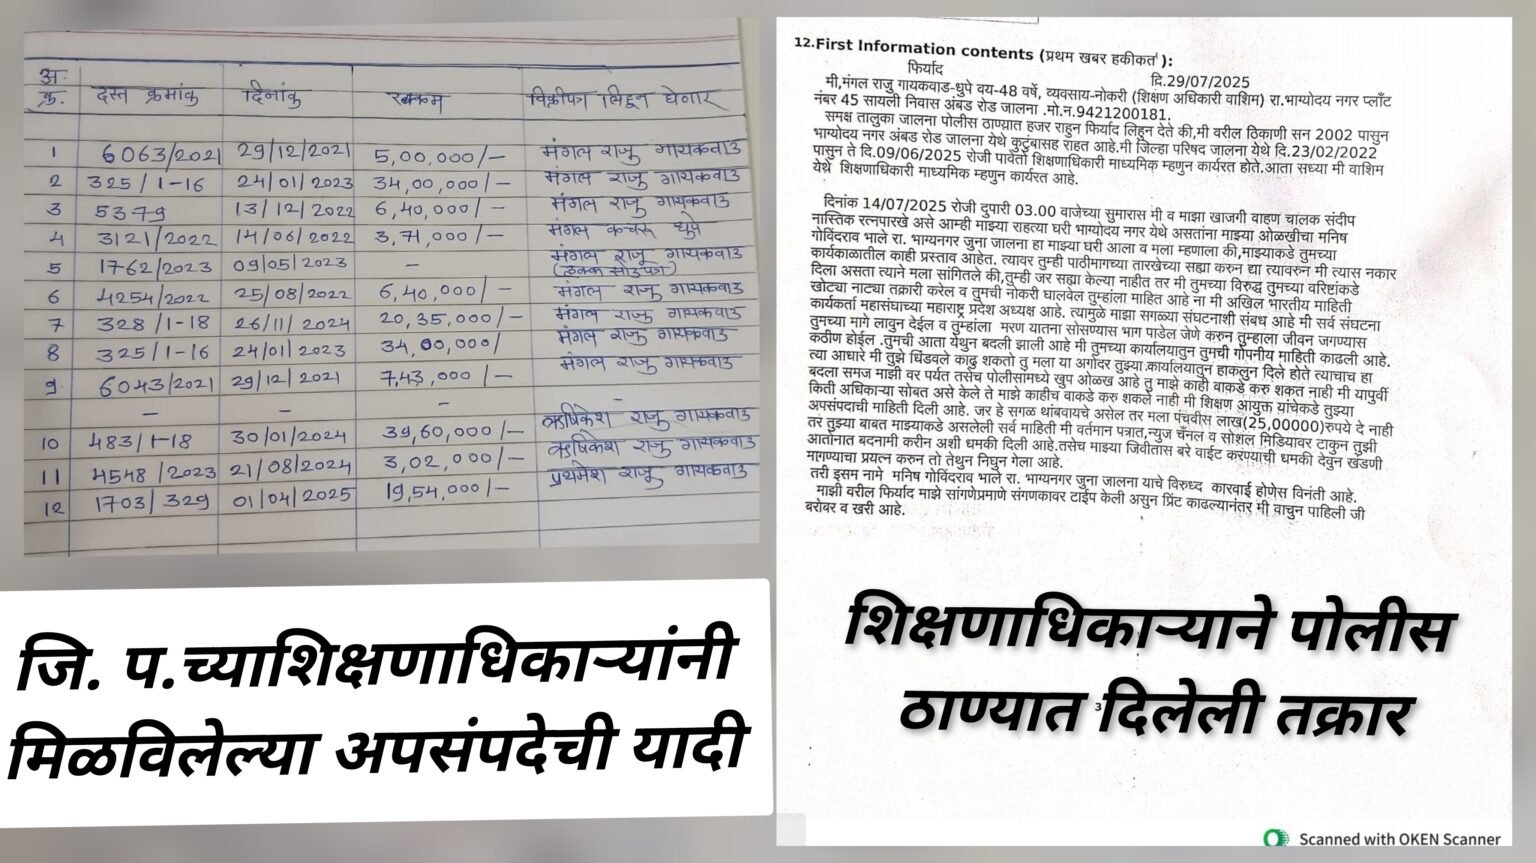 अ.
क्र. दस्त क्रमांक दिनांक रक्कम विक्रीपत्र लिहून घेणार
1 6063/2021 29/12/2021 5,00,000/- मंगल राजु गायकवाड
2 325/1-16 24/01/2023 34,00,000/- मंगल राजु गायकवाड
3 5379 13/12/2022 6,40,000/- मंगल राजु गायकवाड
4 3121/2022 14/06/2022 3,71,000/- मंगल कचरू धुपे
5 1762/2023 09/05/2023 - मंगल राजू गायकवाड
(हक्क सोडपत्र)
6 4254/2022 25/08/2022 6,40,000/- मंगल राजु गायकवाड
7 328/1-18 26/11/2024 20,35,000/- मंगल राजु गायकवाड
8 325/1-16 24/01/2023 34,00,000/ मंगल राजु गायकवाड
9. 6043/2021 29/12/2021 7,43,000/- मंगल राजु गायकवाड
- - - -
10 483/1-18 30/01/2024 39,60,000/- ऋषिकेश राजु गायकवाड
11 4548/2023 21/08/2024 3,02,000/- ऋषिकेश राजु गायकवाड
12 1703/329 01/04/2025 19,54,000/- प्रथमेश राजू गायकवाड
जि. प.च्याशिक्षणाधिकाऱ्यांनी
मिळविलेल्या अपसंपदेची यादी
12.First Information contents (प्रथम खबर हकीकत):
फिर्याद दि.29/07/2025
मी,मंगल राजु गायकवाड-धुपे वय-48 वर्षे, व्यवसाय-नोकरी (शिक्षण अधिकारी वाशिम) रा.भाग्योदय नगर प्लॉट
नंबर 45 सायली निवास अंबड रोड जालना .मो.न.9421200181.
समक्ष तालुका जालना पोलीस ठाण्यात हजर राहुन फिर्याद लिहुन देते की,मी वरील ठिकाणी सन 2002 पासुन
भाग्योदय नगर अंबड रोड जालना येथे कुटुंबासह राहत आहे.मी जिल्हा परिषद जालना येथे दि.23/02/2022
पासुन ते दि.09/06/2025 रोजी पावेतो शिक्षणाधिकारी माध्यमिक म्हणुन कार्यरत होते.आता सध्या मी वाशिम
येथे शिक्षणाधिकारी माध्यमिक म्हणुन कार्यरत आहे.
दिनांक 14/07/2025 रोजी दुपारी 03.00 वाजेच्या सुमारास मी व माझा खाजगी वाहण चालक संदीप
नास्तिक रत्नपारखे असे आम्ही माझ्या राहत्या घरी भाग्योदय नगर येथे असतांना माझ्या ओळखीचा मनिष
गोविंदराव भाले रा. भाग्यनगर जुना जालना हा माझ्या घरी आला व मला म्हणाला की,माझ्याकडे तुमच्या
कार्यकाळातील काही प्रस्ताव आहेत. त्यावर तुम्ही पाठीमागच्या तारखेच्या सह्या करुन द्या त्यावरुन मी त्यास नकार
दिला असता त्याने मला सांगितले की,तुम्ही जर सह्या केल्या नाहीत तर मी तुमच्या विरुद्ध तुमच्या वरिष्ठांकडे
खोट्या नाट्या तक्रारी करेल व तुमची नोकरी घालवेल तुम्हाला माहित आहे ना मी अखिल भारतीय माहिती
कार्यकर्ता महासंघाच्या महाराष्ट्र प्रदेश अध्यक्ष आहे. त्यामुळे माझा सगळ्या संघटनाशी संबध आहे मी सर्व संघटना
तुमच्या मागे लावुन देईल व तुम्हांला मरण यातना सोसण्यास भाग पाडेल जेणे करुन तुम्हाला जीवन जगण्यास
कठीण होईल .तुमची आता येथुन बदली झाली आहे मी तुमच्या कार्यालयातुन तुमची गोपनीय माहिती काढली आहे.
त्या आधारे मी तुझे धिंडवले काढु शकतो तु मला या अगोदर तुझ्या.कार्यालयातुन हाकलुन दिले होते त्याचाच हा
बदला समज माझी वर पर्यत तसेच पोलीसामध्ये खुप ओळख आहे तु माझे काही बाकडे करु शकत नाही मी यापुर्वी
किती अधिकाऱ्या सोबत असे केले ते माझे काहीच वाकडे करु शकले नाही मी शिक्षण आयुक्त यांचेकडे तुझ्या
अपसंपदाची माहिती दिली आहे. जर हे सगळ थांबवायचे असेल तर मला पंचवीस लाख(25,00000)रुपये दे नाही
तर तुझ्या बाबत माझ्याकडे असलेली सर्व माहिती मी वर्तमान पत्रात,न्युज चॅनल व सोशल मिडियावर टाकुन तुझी
आतोनात बदनामी करीन अशी धमकी दिली आहे.तसेच माझ्या जिवीतास बरे वाईट करण्याची धमकी देवुन खंडणी
मागण्याचा प्रयत्न करुन तो तेथुन निघुन गेला आहे.
तरी इसम नामे मनिष गोविंदराव भाले रा. भाग्यनगर जुना जालना याचे विरुध्द कारवाई होणेस विनंती आहे.
माझी वरील फिर्याद माझे सांगणेप्रमाणे संगणकावर टाईप केली असुन प्रिंट काढल्यानंतर मी वाचुन पाहिली जी
बरोबर व खरी आहे.
शिक्षणाधिकाऱ्याने पोलीस
ठाण्यात दिलेली तक्रार
3
Scanned with OKEN Scanner